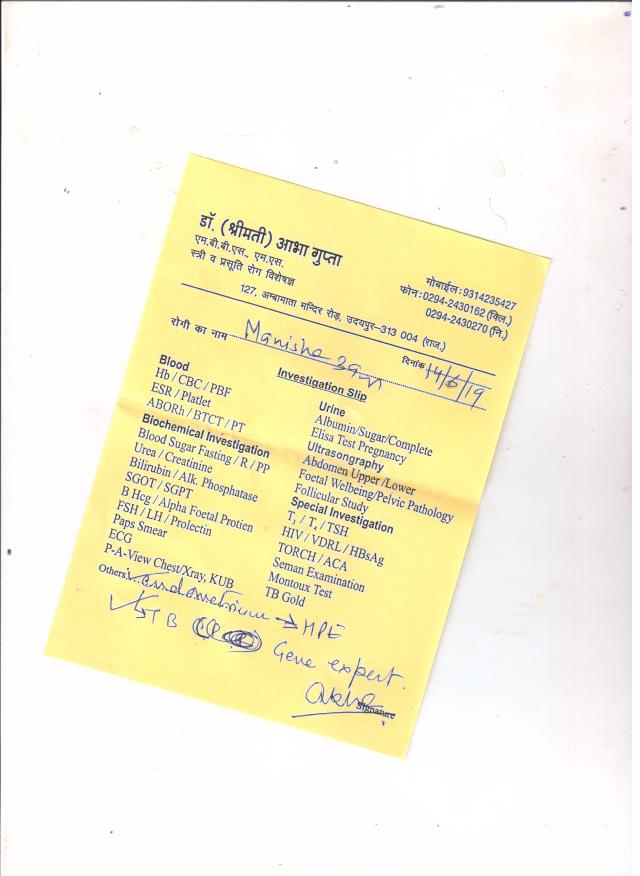 डॉ. (श्रीमती) आभा गुप्ता
एम.बी.बी.एस., एम.एस.
स्त्री व प्रसूति रोग विशेषज्ञ
मोबाईल: 9314235427
फोन: 0294-2430162 (क्लि.)
0294-2430270 (नि.)
127, अम्बामाता मन्दिर रोड़, उदयपुर-313 004 (राज.)
रोगी का नाम Manisha दिनांक 14/6/19
Investigation Slip
Blood
Hb / CBC / PBF
ESR / Platlet
ABORh / BTCT / PT
Biochemical Investigation
Blood Sugar Fasting / R / PP
Urea / Creatinine
Bilirubin / Alk. Phosphatase
SGOT / SGPT
B Hcg / Alpha Foetal Protien
FSH / LH / Prolectin
Paps Smear
ECG
P-A-View Chest/Xray, KUB
Urine
Albumin/Sugar/Complete
Elisa Test Pregnancy
Ultrasongraphy
Abdomen Upper /Lower
Foetal Welbeing/Pelvic Pathology
Follicular Study
Special Investigation
T₃ / T₄ / TSH
HIV / VDRL / HBsAg
TORCH / ACA
Seman Examination
Montoux Test
TB Gold
Others. endometrium → HPE
TB Gene expert.
Signature